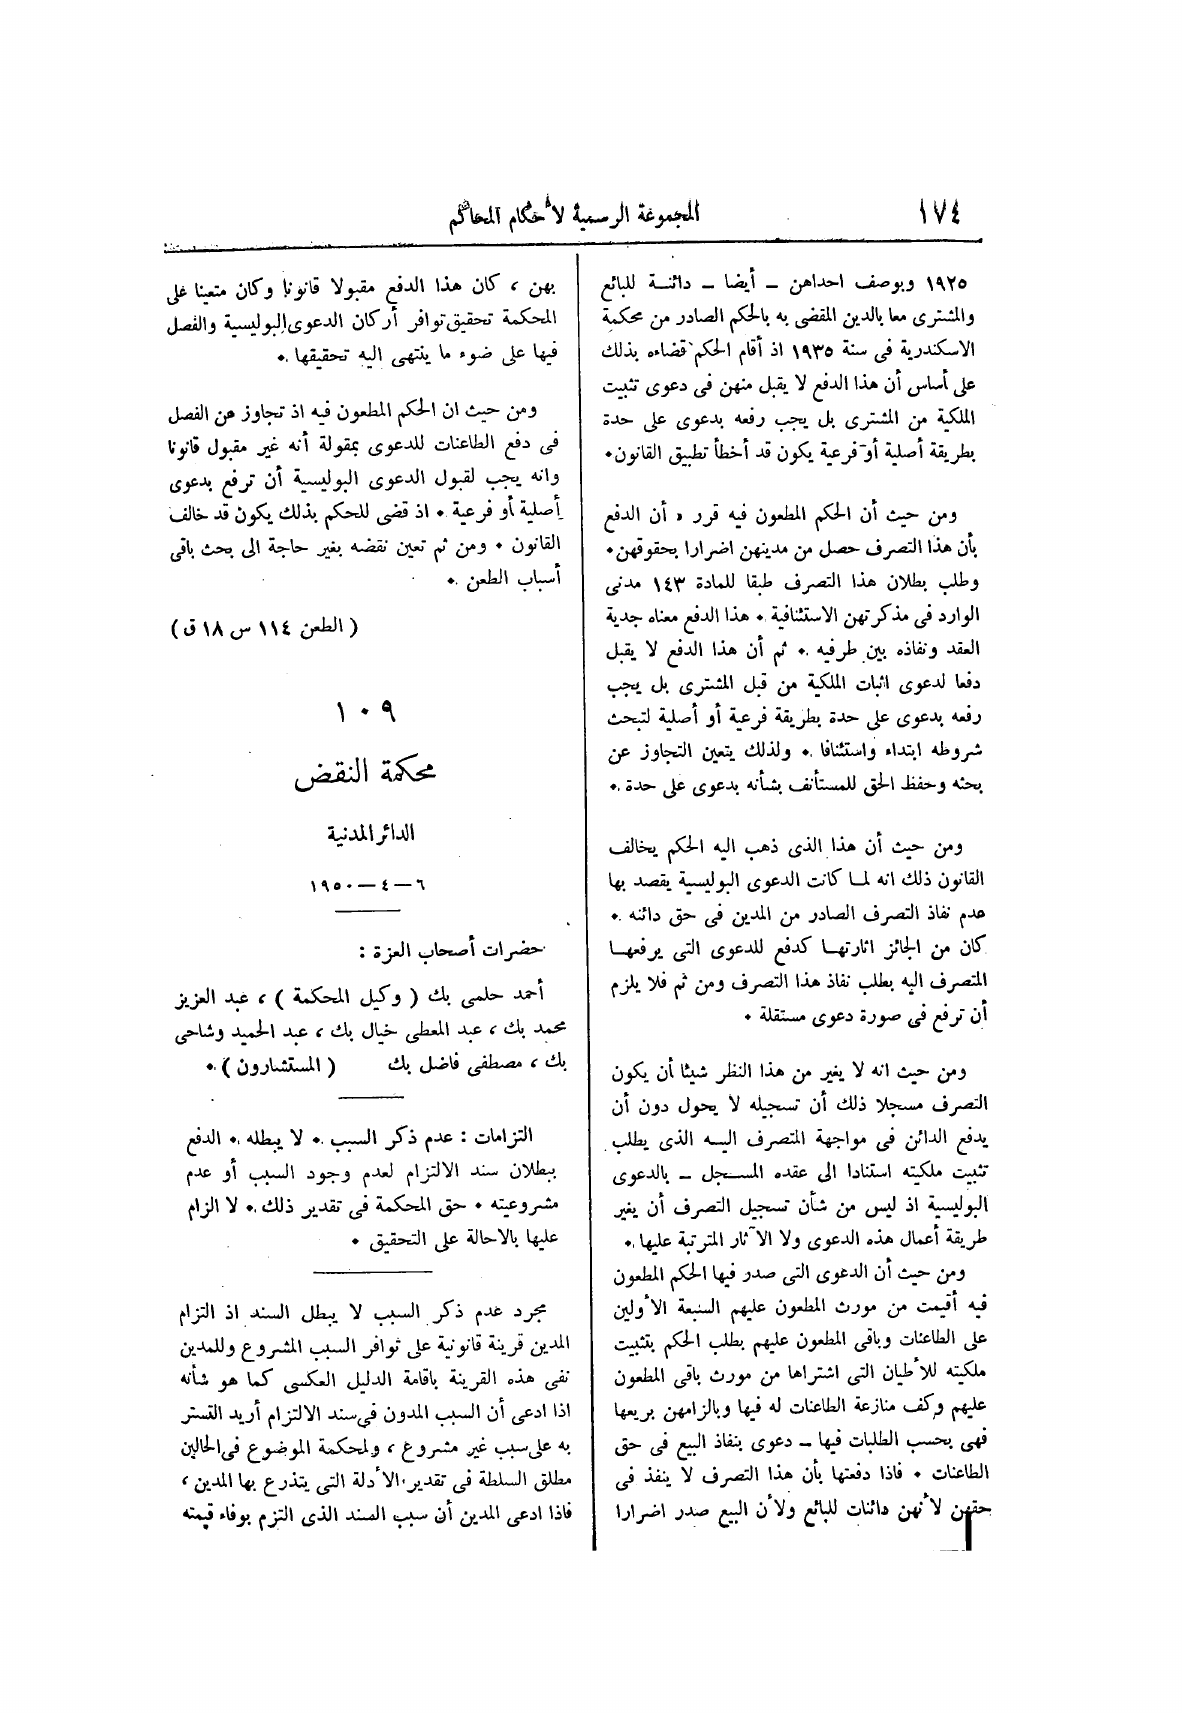 ١٧٤
المجموعة الرسمية لأحكام المحاكم
١٩٢٥ وبوصف احداهن – أيضا – دائنة للبائع
والمشترى معا بالدين المقضى به بالحكم الصادر من محكمة
الاسكندرية فى سنة ١٩٣٥ اذ أقام الحكم قضاءه بذلك
على أساس أن هذا الدفع لا يقبل منهن فى دعوى تثبيت
الملكية من المشترى بل يجب رفعه بدعوى على حدة
بطريقة أصلية أو فرعية يكون قد أخطأ تطبيق القانون٠
ومن حيث أن الحكم المطعون فيه قرر « أن الدفع
بأن هذا التصرف حصل من مدينهن اضرارا بحقوقهن٠
وطلب بطلان هذا التصرف طبقا للمادة ١٤٣ مدنى
الوارد فى مذكرتهن الاستئنافية ٠ هذا الدفع معناه جدية
العقد ونفاذه بين طرفيه ٠ ثم أن هذا الدفع لا يقبل
دفعا لدعوى اثبات الملكية من قبل المشترى بل يجب
رفعه بدعوى على حدة بطريقة فرعية أو أصلية لتبحث
شروطه ابتداء واستئنافا ٠ ولذلك يتعين التجاوز عن
بحثه وحفظ الحق للمستأنف بشأنه بدعوى على حدة ٠
ومن حيث أن هذا الذى ذهب اليه الحكم يخالف
القانون ذلك انه لما كانت الدعوى البوليسية يقصد بها
عدم نفاذ التصرف الصادر من المدين فى حق دائنه ٠
كان من الجائز اثارتها كدفع للدعوى التى يرفعها
المتصرف اليه بطلب نفاذ هذا التصرف ومن ثم فلا يلزم
أن ترفع فى صورة دعوى مستقلة ٠
ومن حيث انه لا يغير من هذا النظر شيئا أن يكون
التصرف مسجلا ذلك أن تسجيله لا يحول دون أن
يدفع الدائن فى مواجهة المتصرف اليه الذى يطلب
تثبيت ملكيته استنادا الى عقده المسجل – بالدعوى
البوليسية اذ ليس من شأن تسجيل التصرف أن يغير
طريقة أعمال هذه الدعوى ولا الآثار المترتبة عليها ٠
ومن حيث أن الدعوى التى صدر فيها الحكم المطعون
فيه أقيمت من مورث المطعون عليهم السبعة الأولين
على الطاعنات وباقى المطعون عليهم بطلب الحكم بتثبيت
ملكيته للأطيان التى اشتراها من مورث باقى المطعون
عليهم وكف منازعة الطاعنات له فيها وبالزامهن بريعها
فهى بحسب الطلبات فيها – دعوى بنفاذ البيع فى حق
الطاعنات ٠ فاذا دفعتها بأن هذا التصرف لا ينفذ فى
حقهن لأنهن دائنات للبائع ولأن البيع صدر اضرارا
بهن ، كان هذا الدفع مقبولا قانونا وكان متعينا على
المحكمة تحقيق توافر أركان الدعوى البوليسية والفصل
فيها على ضوء ما ينتهى اليه تحقيقها ٠
ومن حيث ان الحكم المطعون فيه اذ تجاوز عن الفصل
فى دفع الطاعنات للدعوى بمقولة أنه غير مقبول قانونا
وانه يجب لقبول الدعوى البوليسية أن ترفع بدعوى
أصلية أو فرعية ٠ اذ قضى للحكم بذلك يكون قد خالف
القانون ٠ ومن ثم تعين نقضه بغير حاجة الى بحث باقى
أسباب الطعن ٠
( الطعن ١١٤ س ١٨ ق )
١٠٩
محكمة النقض
الدائر المدنية
٦ – ٤ – ١٩٥٠
حضرات أصحاب العزة :
أحمد حلمى بك ( وكيل المحكمة ) ، عبد العزيز
محمد بك ، عبد المعطى خيال بك ، عبد الحميد وشاحى
بك ، مصطفى فاضل بك ( المستشارون ) ٠
التزامات : عدم ذكر السبب ٠ لا يبطله ٠ الدفع
ببطلان سند الالتزام لعدم وجود السبب أو عدم
مشروعيته ٠ حق المحكمة فى تقدير ذلك ٠ لا الزام
عليها بالاحالة على التحقيق ٠
مجرد عدم ذكر السبب لا يبطل السند اذ التزام
المدين قرينة قانونية على توافر السبب المشروع وللمدين
نفى هذه القرينة باقامة الدليل العكسى كما هو شأنه
اذا ادعى أن السبب المدون فى سند الالتزام أريد التستر
به على سبب غير مشروع ، ولمحكمة الموضوع فى الحالين
مطلق السلطة فى تقدير الأدلة التى يتذرع بها المدين ،
فاذا ادعى المدين أن سبب السند الذى التزم بوفاء قيمته